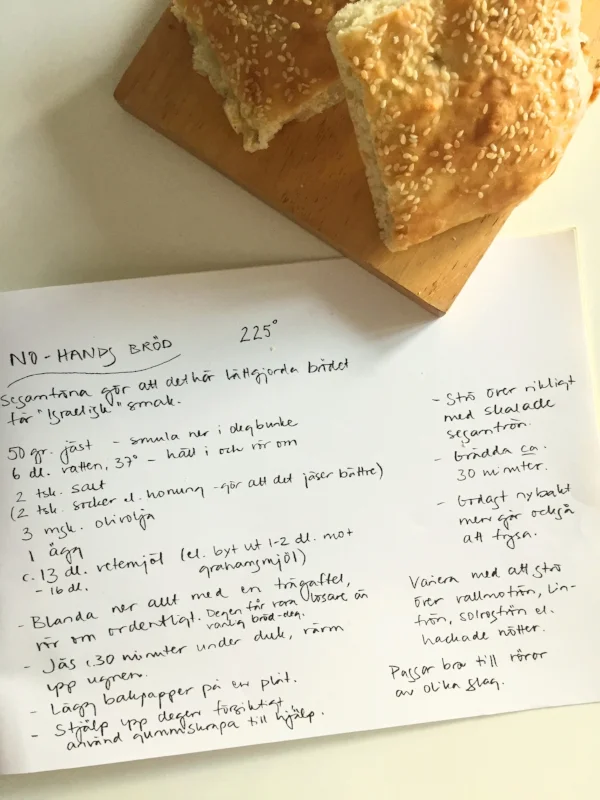 NO-HANDS BRÖD
225°
Sesamfröna gör att det här lättgjorda brödet
får "Israelisk" smak.
50 gr. jäst - smula ner i degbunke
6 dl. vatten, 37° - häll i och rör om
2 tsk. salt
(2 tsk. socker el. honung - gör att det jäser bättre)
3 msk. olivolja
1 ägg
c. 13 dl. vetemjöl (el. byt ut 1-2 dl. mot
- 16 dl. grahamsmjöl)
- Blanda ner allt med en trägaffel,
rör om ordentligt. Degen får vara lösare än
vanlig bröd-deg.
- Jäs c. 30 minuter under duk, värm
upp ugnen.
- Lägg bakpapper på en plåt.
- Stjälp upp degen försiktigt
använd gummiskrapa till hjälp.
- Strö över rikligt
med skalade
sesamfrön.
- Grädda ca.
30 minuter.
- Godast nybakt
men går också
att frysa.
Variera med att strö
över vallmofrön, lin-
frön, solrosfrön el.
hackade nötter.
Passar bra till röror
av olika slag.